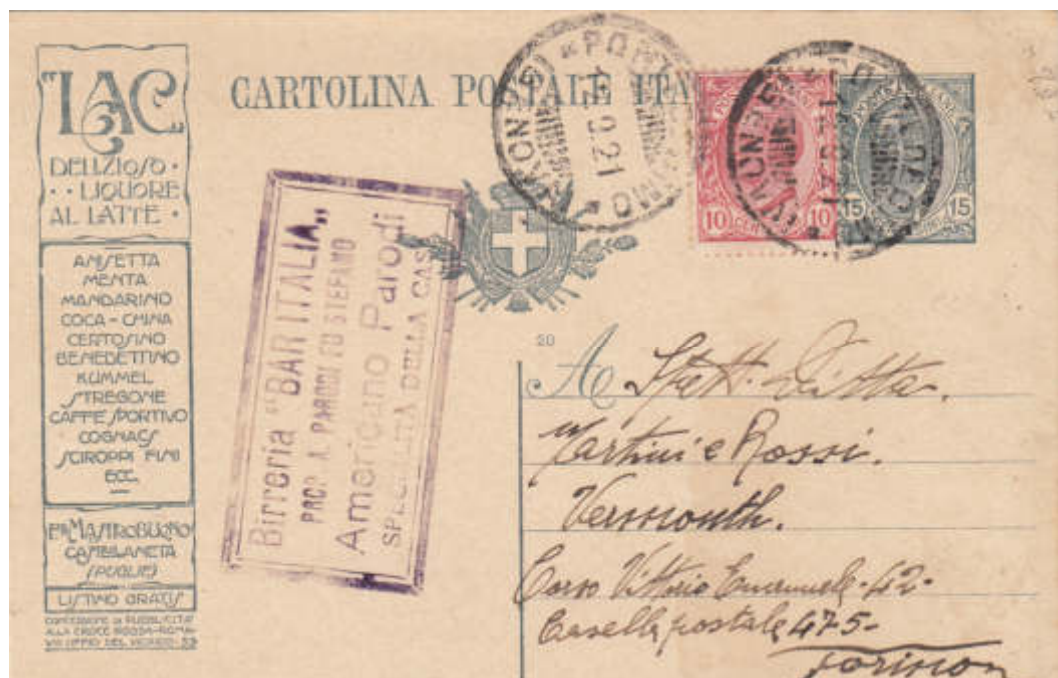 "LAC"
DELIZIOSO ·
· · LIQUORE
AL LATTE ·
ANISETTA
MENTA
MANDARINO
COCA - CHINA
CERTOSINO
BENEDETTINO
KUMMEL
STREGONE
CAFFÈ SPORTIVO
COGNACS
SCIROPPI FINI
ECC.
F.lli MASTROBUONO
CASTELLANETA
(PUGLIE)
LISTINO GRATIS
CONCESSIONE DI PUBBLICITÀ
ALLA CROCE ROSSA - ROMA
VIA UFFICI DEL VICARIO - 53
CARTOLINA POSTALE ITA
9.21
10 CENT 10
15 15
Birreria "BAR ITALIA„
PROP. A. PARODI FU STEFANO
Americano Parodi
SPECIALITÀ DELLA CASA
20
A Spett. Ditta
Martini e Rossi.
Vermouth.
Corso Vittorio Emanuele - 42 -
Casella postale 475 -
Torino